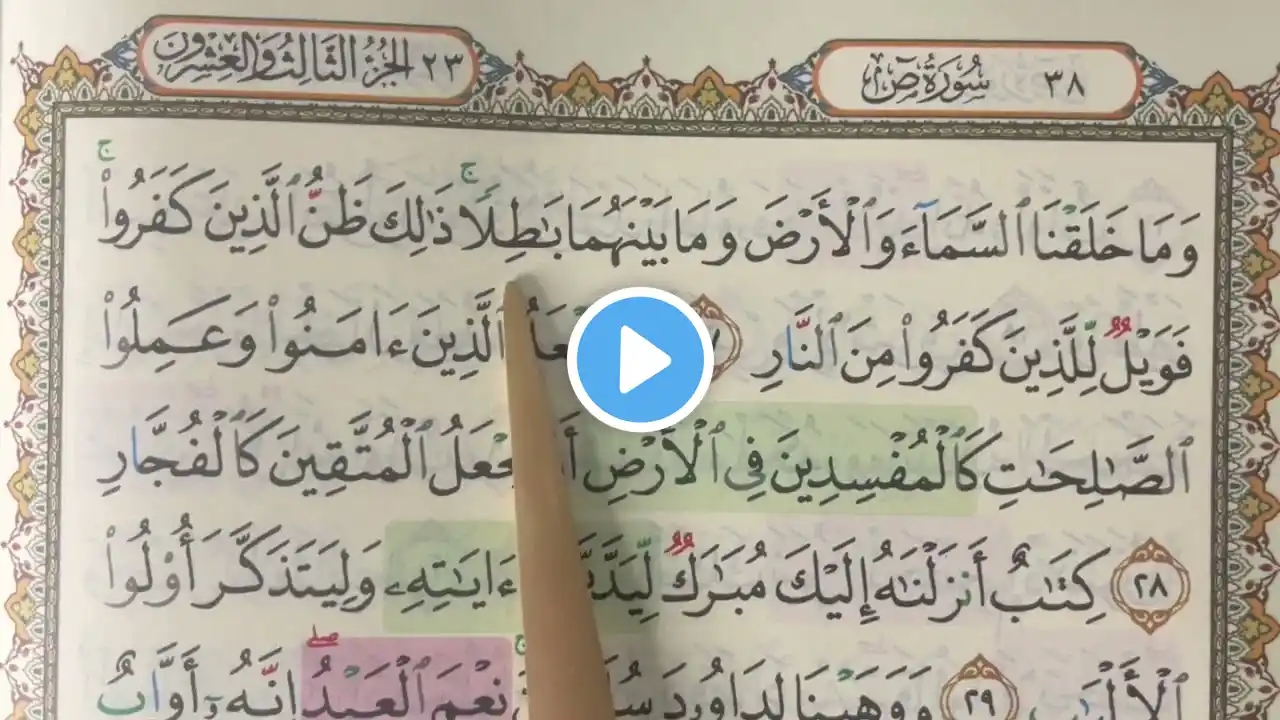 ٣٨ سُورَةُ صٓ
٢٣ الجُزْءُ الثَّالِثُ وَالعِشْرُونَ
وَمَا خَلَقْنَا ٱلسَّمَآءَ وَٱلْأَرْضَ وَمَا بَيْنَهُمَا بَٰطِلًا ۚ ذَٰلِكَ ظَنُّ ٱلَّذِينَ كَفَرُوا۟ ۚ
فَوَيْلٌ لِّلَّذِينَ كَفَرُوا۟ مِنَ ٱلنَّارِ ٱلَّذِينَ ءَامَنُوا۟ وَعَمِلُوا۟
ٱلصَّٰلِحَٰتِ كَٱلْمُفْسِدِينَ فِى ٱلْأَرْضِ ٱلْمُتَّقِينَ كَٱلْفُجَّارِ
٢٨ كِتَٰبٌ أَنزَلْنَٰهُ إِلَيْكَ مُبَٰرَكٌ ءَايَٰتِهِۦ وَلِيَتَذَكَّرَ أُو۟لُوا۟
ٱلْأَلْبَٰبِ ٢٩ وَوَهَبْنَا لِدَاوُۥدَ نِعْمَ ٱلْعَبْدُ ۖ إِنَّهُۥٓ أَوَّابٌ